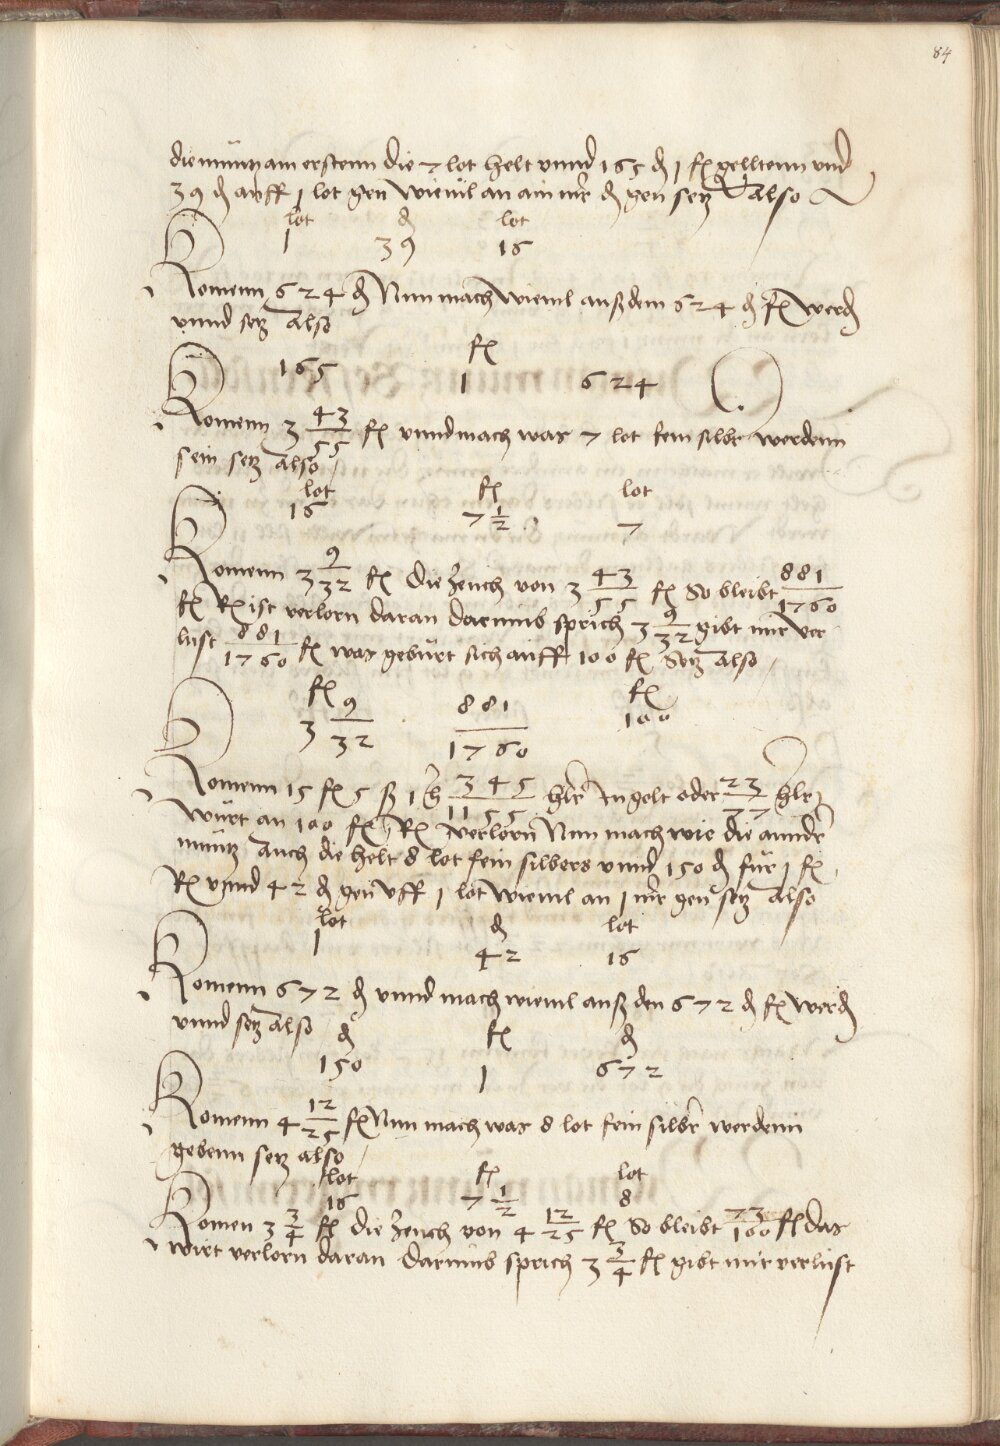 84
die müntz am ersten die 7 lot helt vnnd 165 ₰ 1 fl gelltenn vnd
39 ₰ auff 1 lot gen wieuil an ain mr ₰ gen setz also
lot ₰ lot
1 39 16
Komenn 624 ₰ Nun mach wieuil auß dem 624 ₰ fl werd
vnnd setz also
fl
165 1 624
Komenn 3 43/55 fl vnnd mach was 7 lot fein silbr werdenn
sein setz also
lot fl lot
16 7 1/2 7
Komenn 3 9/32 fl die zeuch von 3 43/55 fl So bleibt 881/1760
fl R ist verlorn daran darumb sprich 3 9/32 gibt mir ver
lust 881/1760 fl was gebürt sich auff 100 fl Setz also
fl fl
3 9/32 881/1760 100
Komenn 15 fl 5 ß 1 h 345/1155 hlr In golt oder 23/77 hlr
würt an 100 fl R verlorn Nun mach wie die annder
müntz auch die helt 8 lot fein silbers vnnd 150 ₰ für 1 fl
R vnnd 42 ₰ gen vff 1 lot wieuil an 1 mr gen setz also
lot ₰ lot
1 42 16
Komenn 672 ₰ vnnd mach wieuil auß den 672 ₰ fl werd
vnnd setz also
₰ fl ₰
150 1 672
Komenn 4 12/25 fl Nun mach was 8 lot fein silbr werdenn
gebenn setz also
lot fl lot
16 7 1/2 8
Komen 3 3/4 fl die zeuch von 4 12/25 fl So bleibt 73/100 fl das
wirt verlorn daran darumb sprich 3 3/4 fl gibt mir verlust